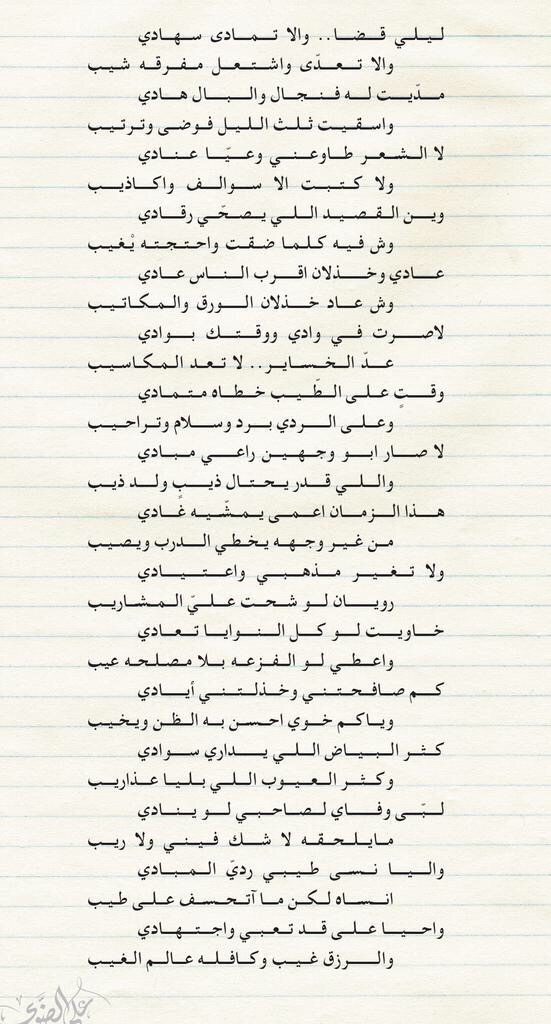 ليلي قضا.. والا تمادى سهادي
والا تعدّى واشتعل مفرقه شيب
مدّيت له فنجال والبال هادي
واسقيت ثلث الليل فوضى وترتيب
لا الشعر طاوعني وعيّا عنادي
ولا كتبت الا سوالف واكاذيب
وين القصيد اللي يصحّي رقادي
وش فيه كلما ضقت واحتجته يْغيب
عادي وخذلان اقرب الناس عادي
وش عاد خذلان الورق والمكاتيب
لاصرت في وادي ووقتك بوادي
عدّ الخساير.. لا تعد المكاسيب
وقتٍ على الطّيب خطاه متمادي
وعلى الردي برد وسلام وتراحيب
لا صار ابو وجهين راعي مبادي
واللي قدر يحتال ذيبٍ ولد ذيب
هذا الزمان اعمى يمشّيه غادي
من غير وجهه يخطي الدرب ويصيب
ولا تغير مذهبي واعتيادي
رويان لو شحت عليّ المشاريب
خاويت لو كل النوايا تعادي
واعطي لو الفزعه بلا مصلحه عيب
كم صافحتني وخذلتني أيادي
وياكم خوي احسن به الظن ويخيب
كثر البياض اللي يداري سوادي
وكثر العيوب اللي بليا عذاريب
لبّى وفاي لصاحبي لو ينادي
مايلحقه لا شك فيني ولا ريب
واليا نسى طيبي رديّ المبادي
انساه لكن ما آتحسف على طيب
واحيا على قد تعبي واجتهادي
والرزق غيب وكافله عالم الغيب